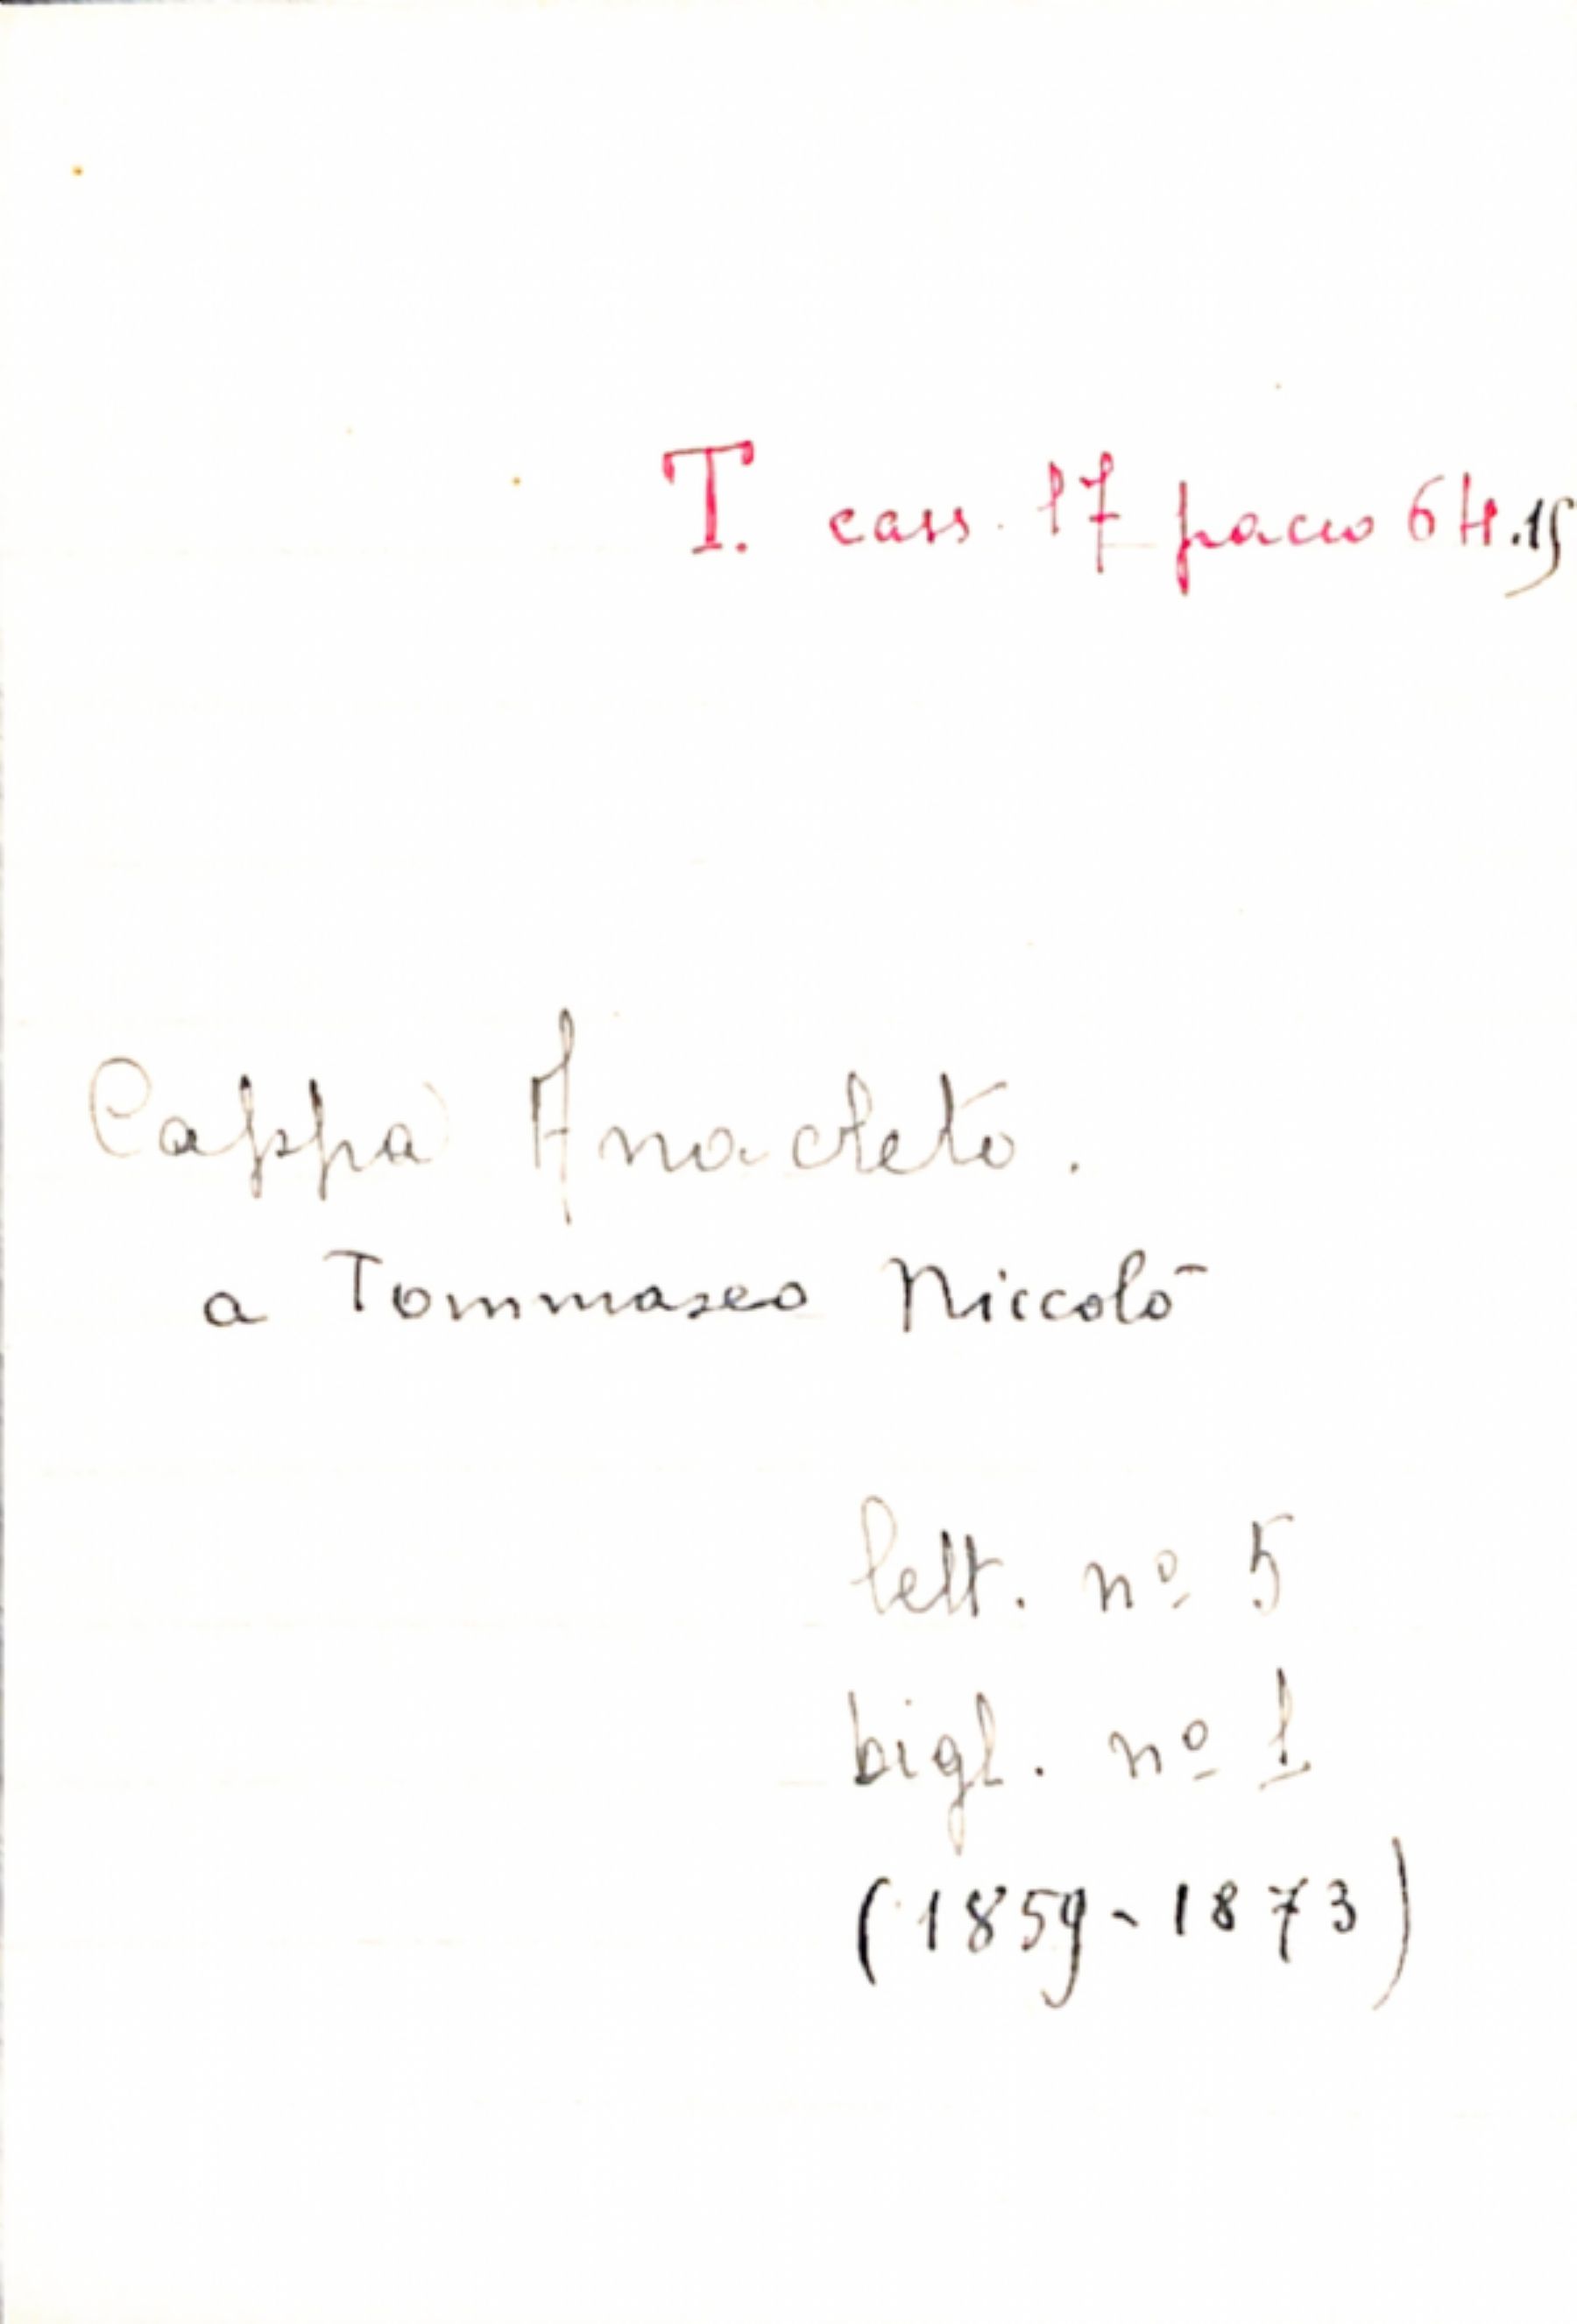 T. cass. 17 pacco 64.15
Cappa Anacleto.
a Tommaseo Niccolò
lett. nº 5
bigl. nº 1
(1859-1873)